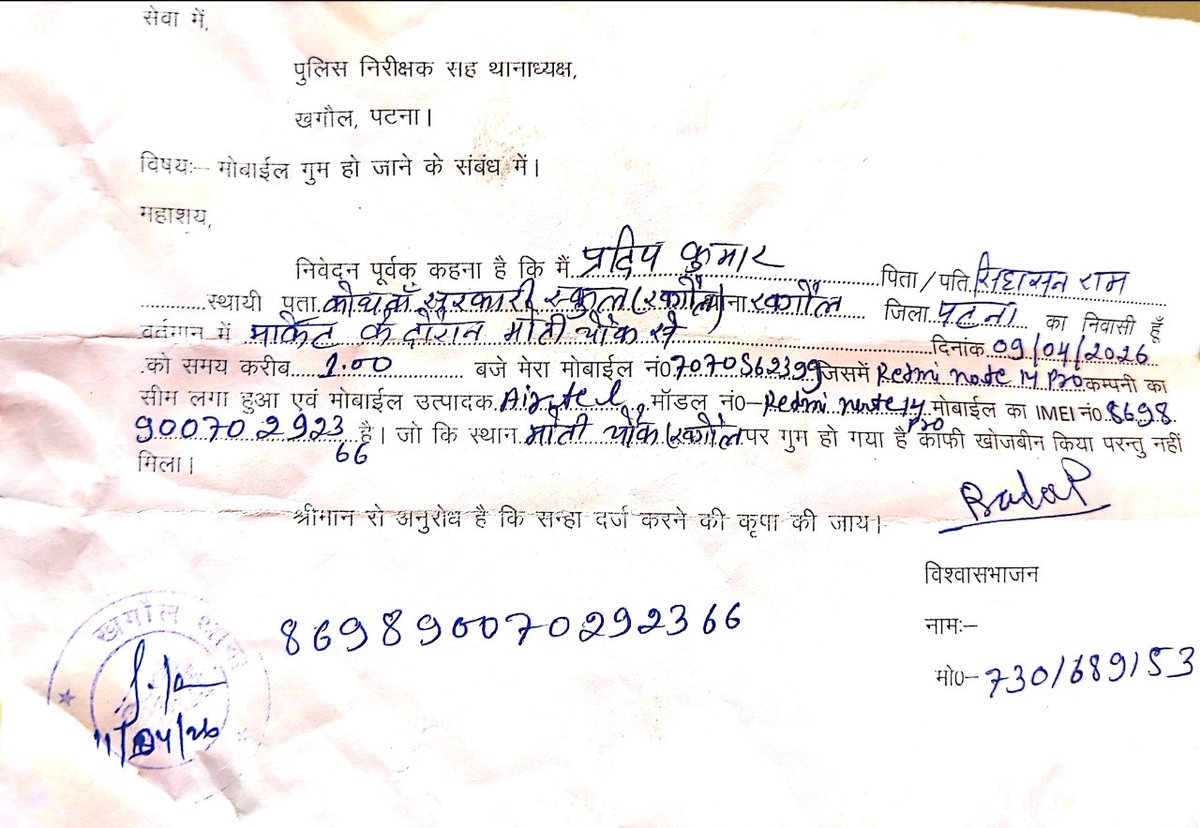 सेवा में,
पुलिस निरीक्षक सह थानाध्यक्ष,
खगौल, पटना।
विषयः– मोबाईल गुम हो जाने के संबंध में।
महाशय,
निवेदन पूर्वक कहना है कि मैं प्रदिप कुमार पिता/पति सिंघासन राम
स्थायी पता कोथवाँ सरकारी स्कुल (खगौल) थाना खगौल जिला पटना का निवासी हूँ
वर्तमान में मार्केट के दौरान मोती चौक से दिनांक 09/04/2026
को समय करीब 1.00 बजे मेरा मोबाईल नं0 7070562399 जिसमें Redmi note 14 Pro कम्पनी का
सीम लगा हुआ एवं मोबाईल उत्पादक Airtel मॉडल नं0– Redmi note 14 Pro मोबाईल का IMEI नं0 8698
900702923 है। जो कि स्थान मोती चौक खगौल पर गुम हो गया है काफी खोजबीन किया परन्तु नहीं
66
मिला।
श्रीमान से अनुरोध है कि सन्हा दर्ज करने की कृपा की जाय।
विश्वासभाजन
869890070292366
नामः–
मो0– 7301689153
खगौल थाना
11/04/26